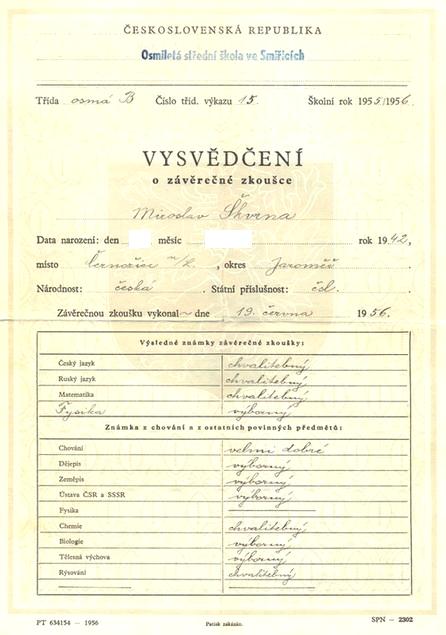 ČESKOSLOVENSKÁ REPUBLIKA
Osmiletá střední škola ve Smiřicích
Třída osmá B Číslo tříd. výkazu 15. Školní rok 1955/1956.
VYSVĚDČENÍ
o závěrečné zkoušce
Miroslav Škvrna
Data narození: den měsíc rok 1942,
místo Černožice n/L., okres Jaroměř
Národnost: česká. Státní příslušnost: čsl.
Závěrečnou zkoušku vykonal~ dne 19. června 1956.
Výsledné známky závěrečné zkoušky:
Český jazyk chvalitebný
Ruský jazyk chvalitebný
Matematika chvalitebný
Fysika výborný
Známka z chování a z ostatních povinných předmětů:
Chování velmi dobré
Dějepis výborný
Zeměpis výborný
Ústava ČSR a SSSR výborný
Fysika
Chemie chvalitebný
Biologie výborný
Tělesná výchova výborný
Rýsování chvalitebný
PT 634154 — 1956 Patisk zakázán. SPN — 2302